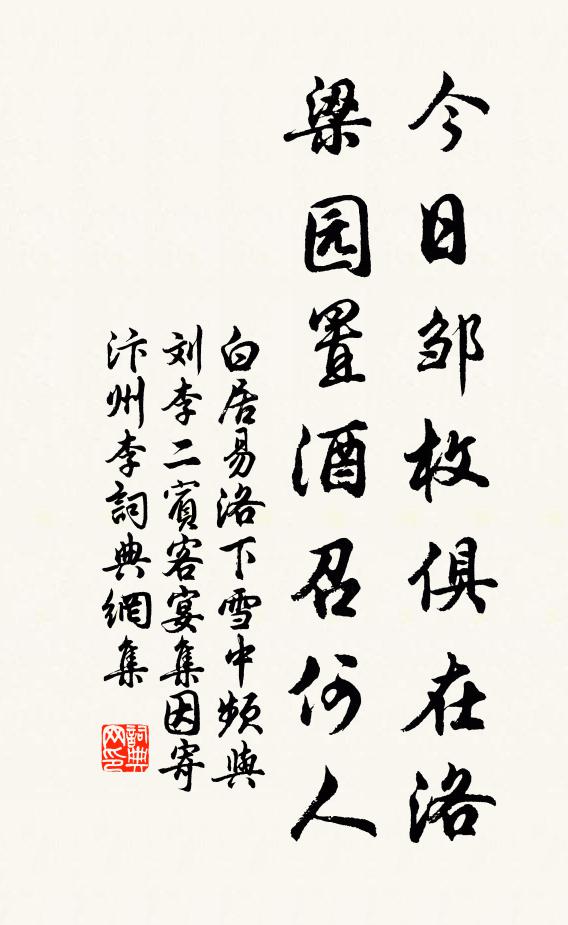 今日邹枚俱在洛
梁园置酒召何人
白居易洛下雪中频與
刘李二賓客宴集因寄
汴州李詞典網集
詞典
网印